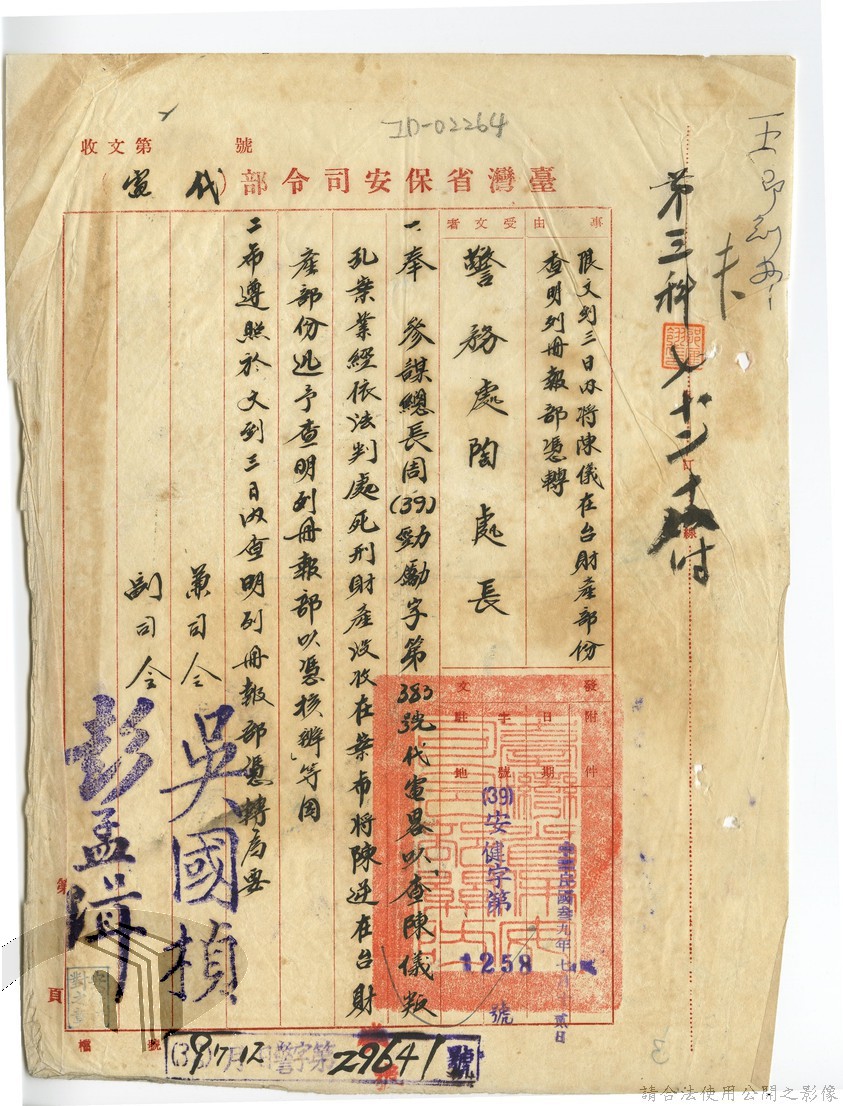 ID-02264
收文第　　　號
臺灣省保安司令部（代電）
事由
限文到三日內將陳儀在台財產部份
查明列冊報部憑轉
受文者
警務處陶處長
發文
附件
日期
字號
駐地
中華民國叁九年七月
(39)安健字第1258號
一、奉　參謀總長周(39)勁勵字第383號代電畧以「查陳儀叛
乱案業經依法判處死刑財產沒收在案希將陳逆在台財
產部份迅予查明列冊報部以憑核辦」等因
二、希遵照於文到三日內查明列冊報部憑轉為要
兼司令 吳國楨
副司令 彭孟緝
第三科
訂
線
第　頁
檔　號
(39)7月12日警字第29641號
3
請合法使用公開之影像